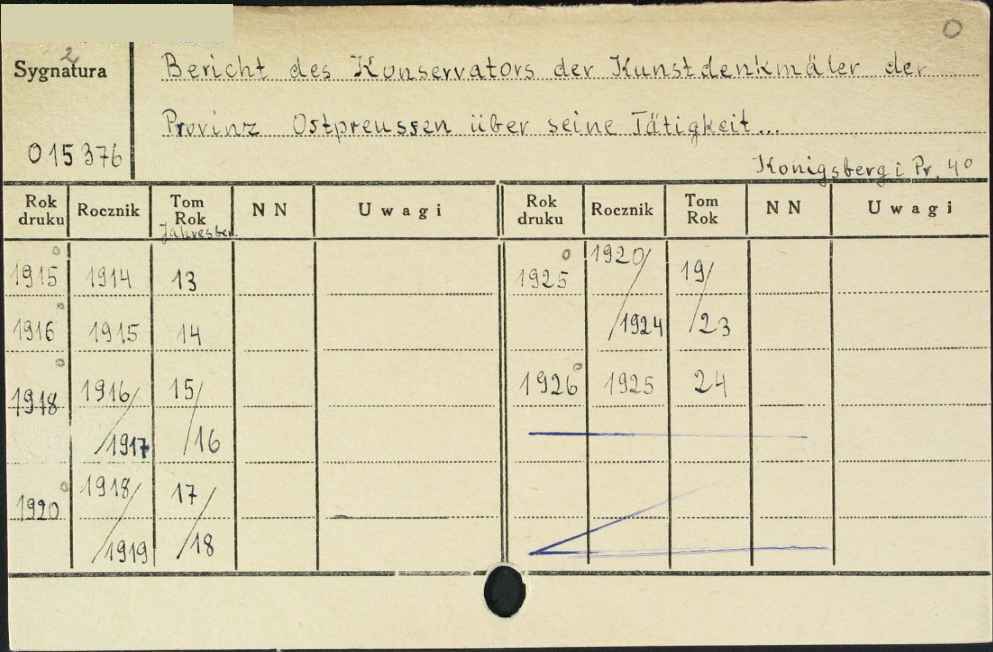 0
2
Sygnatura
015376
Bericht des Konservators der Kunstdenkmäler der
Provinz Ostpreussen über seine Tätigkeit...
Königsberg i Pr. 4°
Rok druku Rocznik Tom Rok NN Uwagi Rok druku Rocznik Tom Rok NN Uwagi
Jahresber.
1915 1914 13
1916 1915 14
1918 1916/ 15/
/1917 /16
1920 1918/ 17/
/1919 /18
1925 1920/ 19/
/1924 /23
1926 1925 24